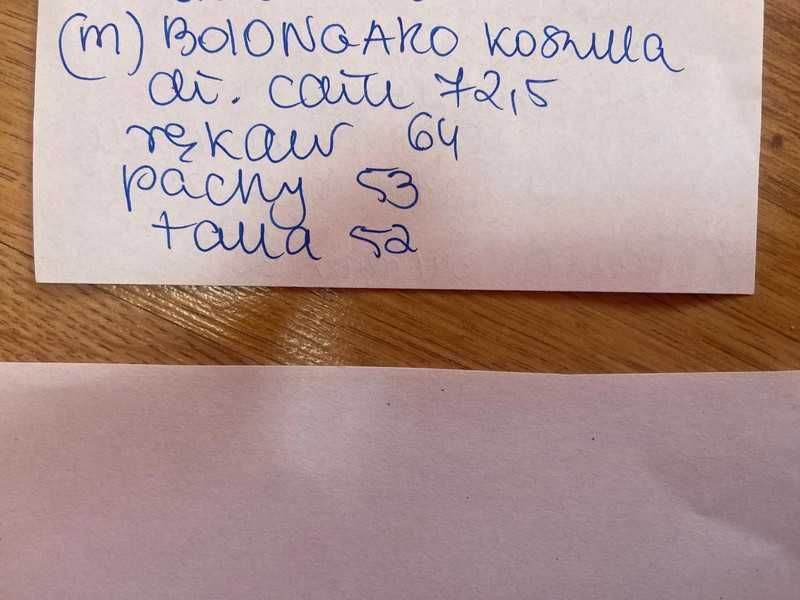 (m) BOLONGARO koszula
dł. całk 72,5
rękaw 64
pachy 53
talia 52